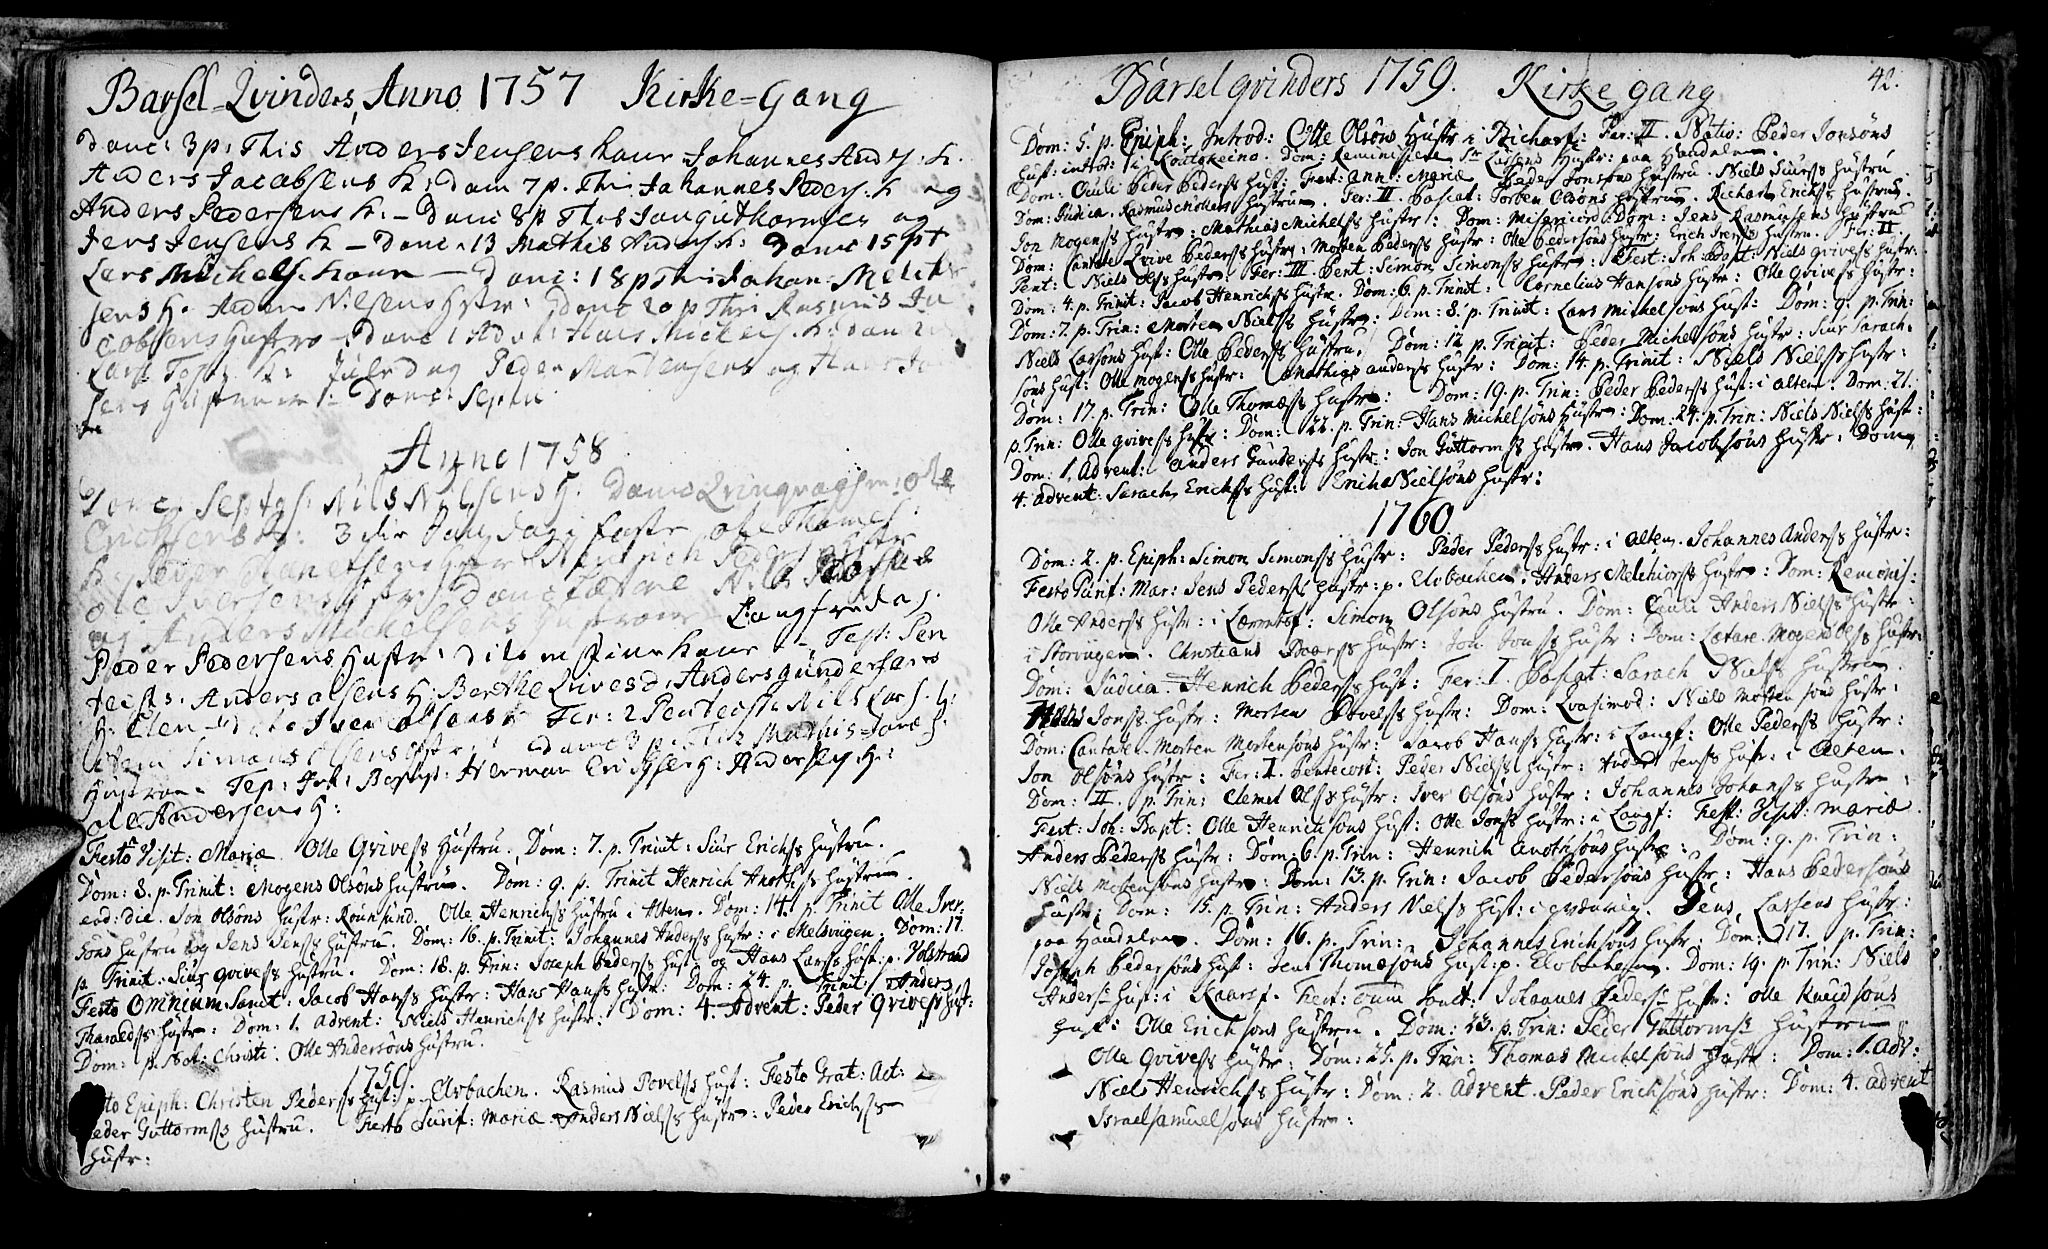 Barsel-Qvinders, Anno 1757 Kirke=Gang
Dom: 3 p: This Anders Jensens kone Johannes Anders: k.
Anders Jacobsens k: Dom 7 p. Thr: Johannes Peders: k og
Anders Pedersens k: – Dom: 8 p This Jon guthormsen og
Jens Jensens k – Dom: 13 Mathis Anders k: Dom: 15 pt
Lars Michels: kone – Dom: 18 p Thr: Johan: Melch
sens H. Peder Nilsens Hstr: Dom: 20 p Thr: Rasmus Ja
cobsens Hustro – Dom: 1 Adv: Hans Mickels: k: Dom 2
Lars k: Juledag Peder Mortensens og Hans
sens Hustruer
Anno 1758
Dom: Septgs: Nils Nilsens H. Dom: Qvinqvagsm: Ole
Ericksens H: 3die Søndag i faste Ole Thomes:
H: Peder Hstr Henrich Peders: Hstr
Ole Iversens Hstr: Dom: Lætare Nils
og Anders Mickelsens Hustroe Langfredag
Peder Pedersens Hustr: Kone – Fest: Pen
techs: Anders Olsens H: Berthe Qvives d: Anders gundersens
H: Elen Iver Olsens Fer: 2 Pentecost: Nils Lars: H:
item Simons Olsens Hstr: Dom: 3 p: This Mathis
Hustroe Fest: Joh: Bapt: Herman Erichsen H: Anders H:
Ole Andersens H:
Festo Visit: Mariæ. Olle Qvivess Hustru. Dom: 7. p. Trinit: Siur Erichss Hustru.
Dom: 8. p. Trinit: Mogens Olsöns Hustrue. Dom: 9. p. Trinit Henrich Hustrue.
eod: die. Jon Olsöns Hustr: Rognsund. Olle Henrichss Hustru i Alten. Dom: 14. p. Trinit Olle Iver:
sons Hustru og Jens Jenss Hustru. Dom: 16. p. Trinit: Johannes Anderss Hustr: i Melsvigen. Dom: 17.
p. Trinit: Siur Qvivess Hustru. Dom: 18. p. Trin: Joseph Pederss Hust: og Hans Larss Hust: p. Volstrand
Festo Omnium Sanct: Jacob Hanss Hustr: Hans Hanss Hustr: Dom: 24. p. Trinit: Anders
Tharaldss Hustr: Dom: 1. Advent: Niels Henrichss Hustr: Dom: 4. Advent: Peder Qvivess Hust:
Dom: p. Nat: Christi: Olle Andersöns Hustru.
1759.
Festo Epiph: Christen Pederss Hust: p. Elvbachen. Rasmus Povelss Hust: Festo Grat: Act:
Peder Guttormss Hustru. Festo Purif: Mariæ Anders Nielss Hustr: Peder Erichss
Hustr:
Barselqvinders 1759. Kirkegang 42.
Dom: 5. p. Epiph: Introd: Olle Olsöns Hustr: i Richarf: Fer: II. Natio: Peder Jonsöns
Hust: introd: i Koutokeino. Dom: Reminiscere Larsens Hustr: paa Handelen.
Dom: Oculi Peder Pederss Hust: Fest: Ann: Mariæ Peder Jonsons Hustru. Niels Siurss Hustru.
Dom: Judica. Rasmus Hustrue. Fer: II Pascat: Torben Olsöns Hustrue. Richart Erichss Hustrue.
Jon Mogenss Hustr: Mathias Michelss Hustr: Dom: Misericord: Dom: Jens Rasmussens Hustru
Dom: Cantate Qvive Pederss Hustr: Morten Pederss Hustr: Olle Pedersöns Hustr: Erich Hustru. Fer: II.
Pent: Niels Olss Hustr: Fer: III. Pent: Simon Simonss Hustr: Fest: Joh: Bapt: Niels Qvivess Hustr:
Dom: 4. p. Trinit: Jacob Henrichss Hustr. Dom: 6. p. Trinit: Cornelius Hansöns Hustr: Olle Qvivess Hustr:
Dom: 7. p. Trin: Morten Nielss Hustr: Dom: 8. p. Trinit: Lars Michelsöns Hust: Dom: 9. p. Trin:
Niels Larsöns Hust: Olle Pederss Hustru. Dom: 12. p. Trinit: Peder Michelsöns Hustr: Siur Sarach-
söns Hust: Olle Mogenss Hustr: Mathias Anderss Hustr: Dom: 14. p. Trinit: Niels Nielss Hustr:
Dom: 17. p. Trin: Olle Thomæss Hustr: Dom: 19. p. Trin: Peder Pederss Hust: i Alten. Dom: 21.
p. Trin: Olle Qvivess Hustr: Dom: 22. p. Trin: Hans Michelsöns Hustr: Dom: 24. p. Trin: Niels Nielss Hust:
Dom: 1. Advent: Anders Gunderss Hustr: Jon Guttormss Hustr. Hans Jacobsöns Hustr: Dom:
4. Advent: Sarach Erichss Hust: Erich Nielsöns Hustr:
1760
Dom: 2. p. Epiph: Simon Simonss Hustr: Peder Pederss Hustr: i Alten. Johannes Anderss Hustr:
Festo Purif: Mar: Jens Pederss Hustr: p. Elvbachen. Anders Melchiorss Hustr: Dom: Reminis:
Olle Anderss Hustr: i Simon Olsöns Hustru. Dom: Oculi Anders Nielss Hustr:
i Storvigen. Christians Hustr: Jon Jonss Hustr: Dom: Lætare. Mogens Olss Hustr:
Dom: Judica. Henrich Pederss Hust: Fer: I. Pascat: Sarach Nielss Hustrue.
Jonss Hustr: Morten Povelss Hustr: Dom: Qvasimod: Niels Mortensöns Hustr:
Dom: Cantate. Morten Mortensöns Hustr: Jacob Hanss Hustr: i Langf: Olle Pederss Hustr:
Jon Olsöns Hustr: Fer: I. Pentecost: Peder Nielss Hustr: Anders Jenss Hust: i Alten.
Dom: II. p. Trin: Clemet Olss Hustr: Iver Olsöns Hustr: Johannes Johanss Hustr:
Fest: Joh: Bapt: Olle Henrichsöns Hust: Olle Jonss Hustr: i Langf: Fest: Visit: Mariæ
Anders Pederss Hustr: Dom: 6. p. Trin: Henrich Hustr: Dom: 9. p. Trin:
Niels Mortensöns Hustr: Dom: 13. p. Trin: Jacob Pedersöns Hustr: Hans Pedersöns
Hustr: Dom: 15. p. Trin: Anders Nielss Hust: i Jens Larsens Hustr:
paa Handelen. Dom: 16. p. Trin: Johannes Erichsöns Hustr: Dom: 17. p. Trin:
Joseph Pedersöns Hust: Jens Thomæsöns Hust: p. Elvbachen. Dom: 19. p. Trin: Niels
Anderss Hust: i Fest: omn: Sanct: Johannes Peders: Hustr: Olle Knudsöns
Hust: Olle Erichsöns Hustru. Dom: 23. p. Trin: Peder Guttormss Hustrue
Olle Qvivess Hustr: Dom: 25. p. Trin: Thomas Michelsöns Hustr: Dom: 1. Adv:
Niels Henrichss Hustr: Dom: 2. Advent. Peder Erichsöns Hustr: Dom: 4. Advent
Israel Samuelsöns Hustr: